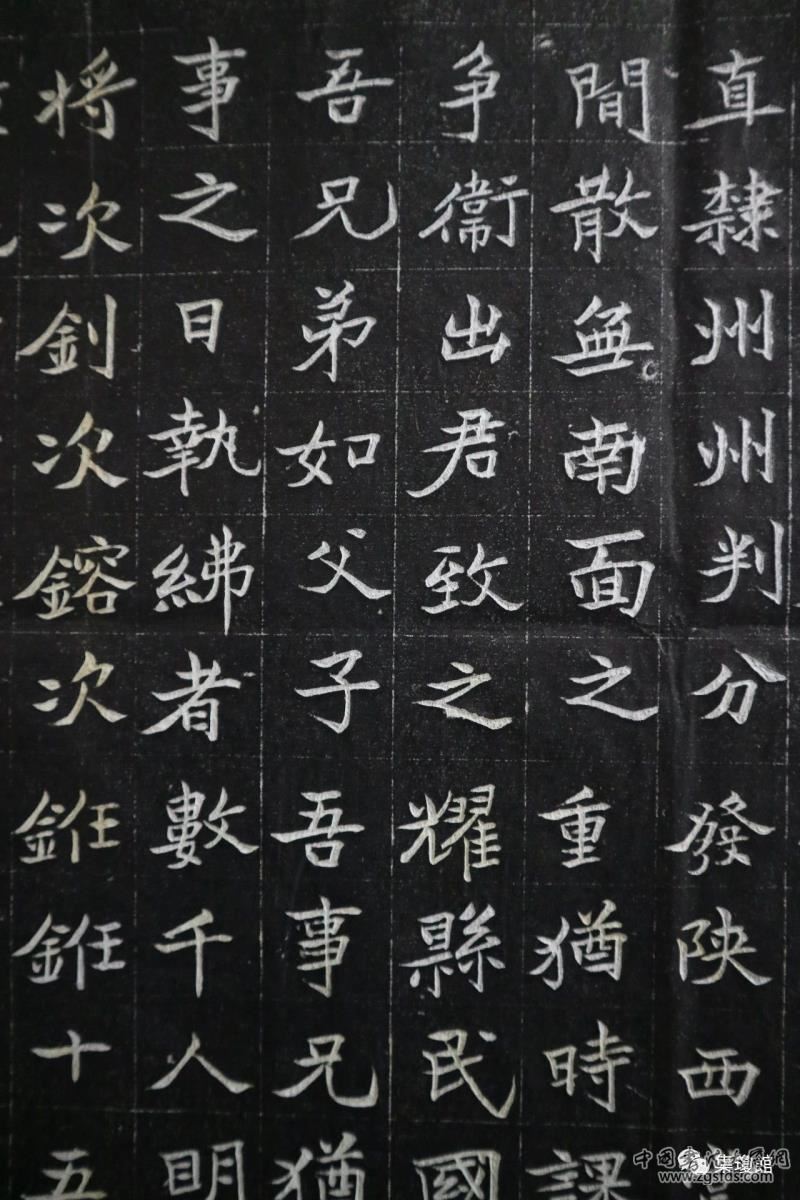 直隸州州判分發陝西
間散無南面之重猶時課
爭衛出君致之耀縣民國
吾兄弟如父子吾事兄猶
事之日執紼者數千人明
將次釗次鎔次銋銋十五
集瓊館
www.zgsfds.com